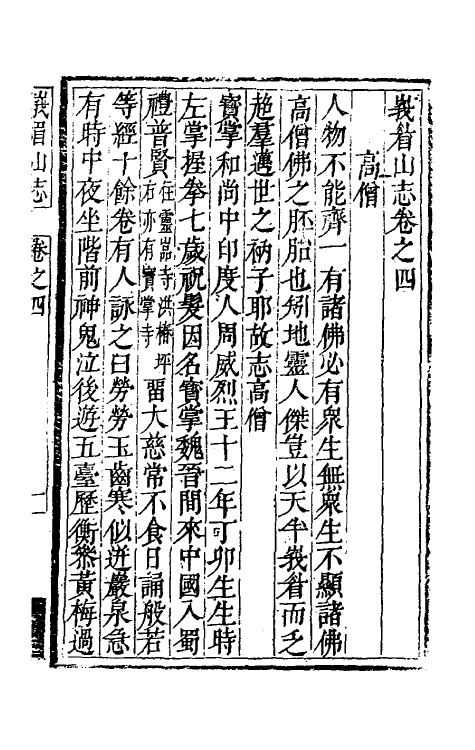 峩眉山志卷之四
高僧
人物不能齊一有諸佛必有衆生無衆生不顯諸佛
高僧佛之胚胎也矧地靈人傑豈以天半峩眉而乏
超羣邁世之衲子耶故志高僧
寶掌和尚中印度人周威烈王十二年丁卯生生時
左掌握拳七歲祝髮因名寶掌魏晉間來中國入蜀
禮普賢在靈巖寺洪椿坪右亦有寶掌寺畱大慈常不食日誦般若
等經十餘卷有人詠之曰勞勞玉齒寒似迸巖泉急
有時中夜坐階前神鬼泣後遊五臺歷衡黃梅過
峩眉山志 卷之四 一